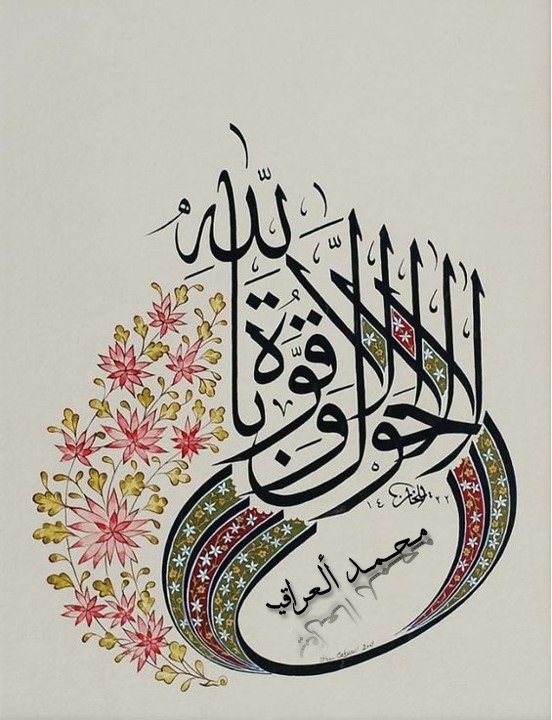 لا حَول ولا قُوَّة إلّا باللّهِ
١٤٢٢
محمد ألعراقي